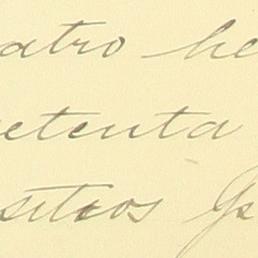 atro he
etenta
sitios